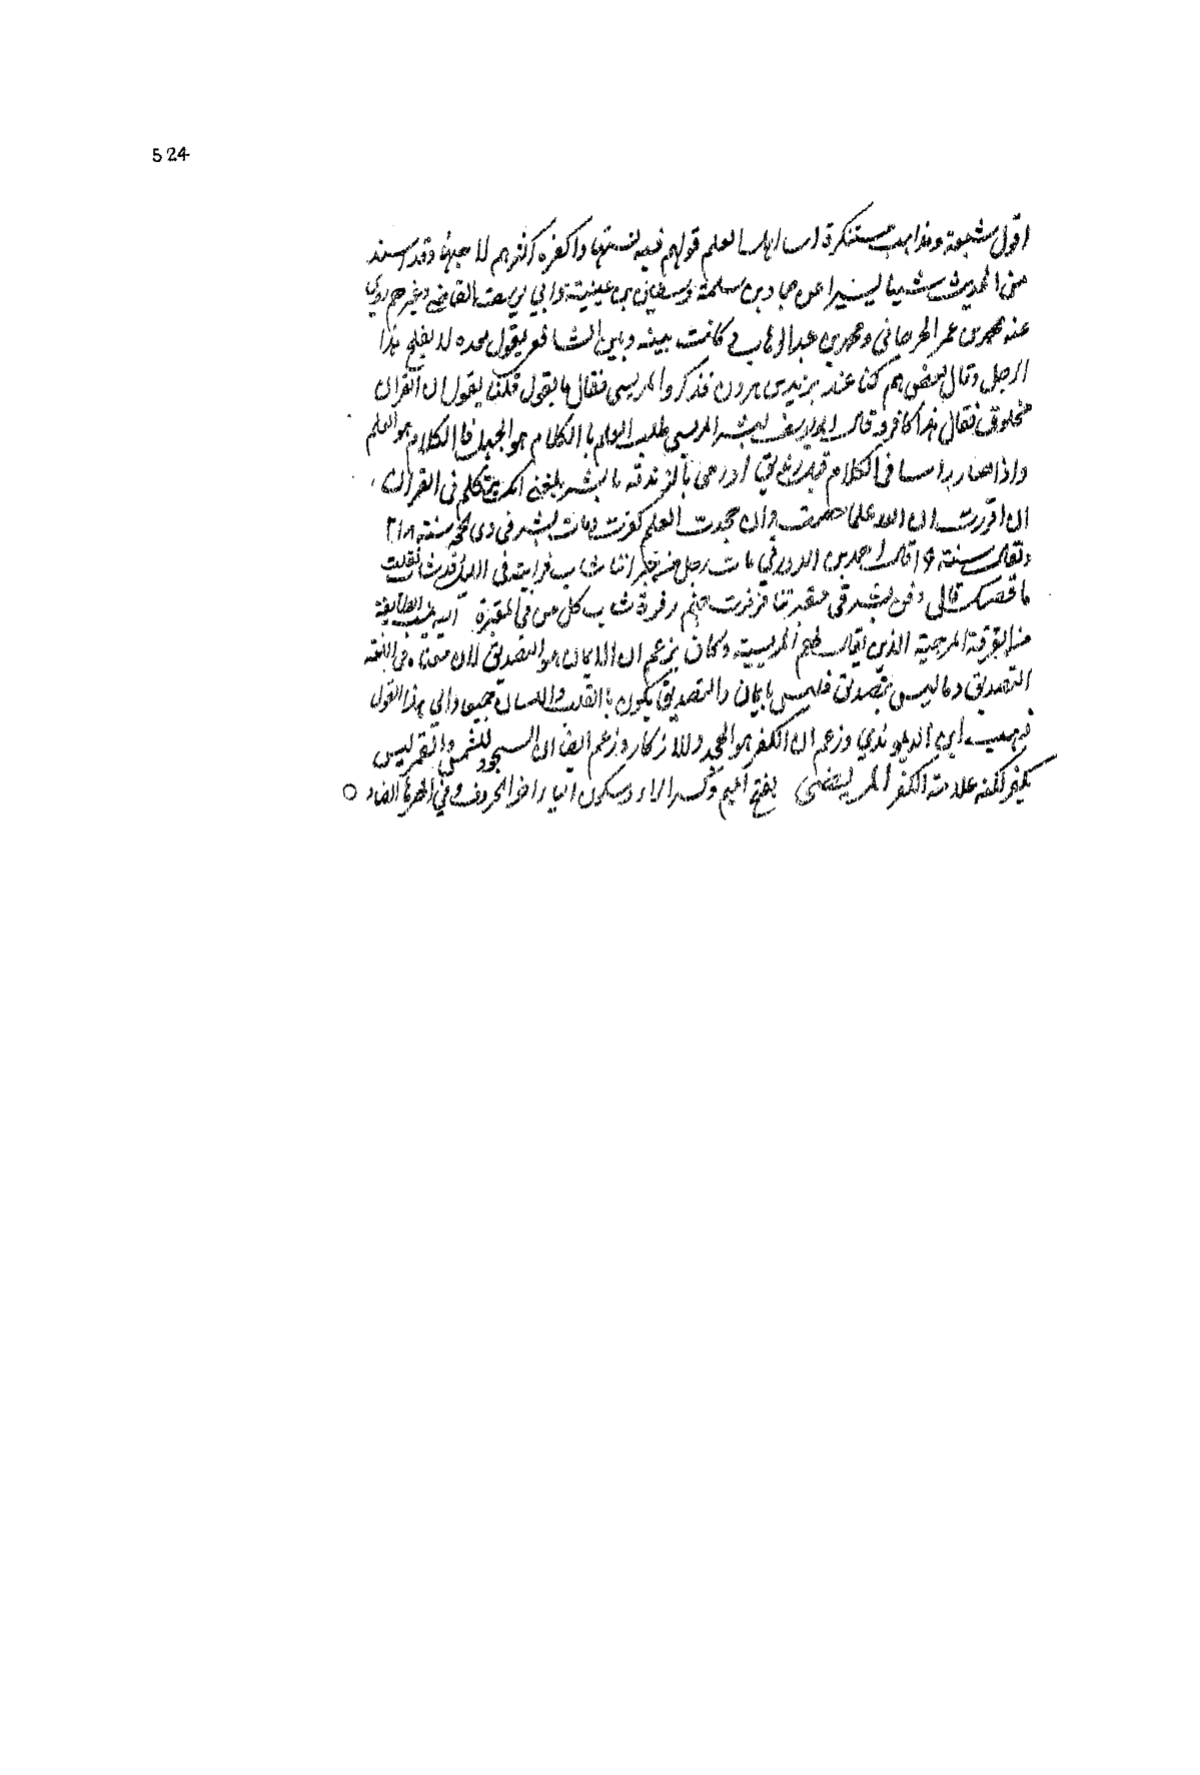 524
اقول شنيعة ومذاهب مستنكرة اسا اهل العلم قولهم فيه بسببها واكفره اكثرهم لاجلها وقد اسند
من الحديث شيئا يسيرا عن حماد بن سلمة وسفيان بن عيينة وابي يوسف القاضي وغيرهم روى
عنه محمد بن عمر الجرجاني ومحمد بن عبد الوهاب وكانت بينه وبين الشافعي يقول لا يفلح هذا
الرجل وقال بعضهم كنا عند يزيد بن هرون فذكروا المريسي فقال ما يقول قلنا يقول ان القران
مخلوق فقال هذا كافر وقال ابو يوسف لبشر المريسي طلب العلم بالكلام هو الجهل بالكلام هو العلم
واذا صار راسا في الكلام قيل زنديق او رمي بالزندقة يا بشر بلغني انك تتكلم في القران
ان اقررت ان لله علما خصمت وان جحدت العلم كفرت ومات بشر في ذي الحجة سنة ٢١٨
ويقال سنة ١٩ قال احمد بن الدورقي مات رجل من جيراننا شاب فرايته في الليل قد شاب فقلت
ما قصتك قال دفن بشر في مقبرتنا فزفرت جهنم زفرة شاب كل من في المقبرة اليه ينسب الطايفة
من الفرقة المرجية الذين يقال لهم المريسية وكان يزعم ان الايمان هو التصديق لان في اللغة
التصديق وما ليس بتصديق فليس بايمان والتصديق يكون بالقلب واللسان جميعا والى هذا القول
ذهب ابن الريوندي وزعم ان الكفر هو الجحد والانكار وزعم ايضا ان السجود للشمس والقمر ليس
بكفر لكنه علامة الكفر المريضي بفتح الميم وكسر الراء وسكون الياء اخر الحروف وفي اخرها الضاد ○